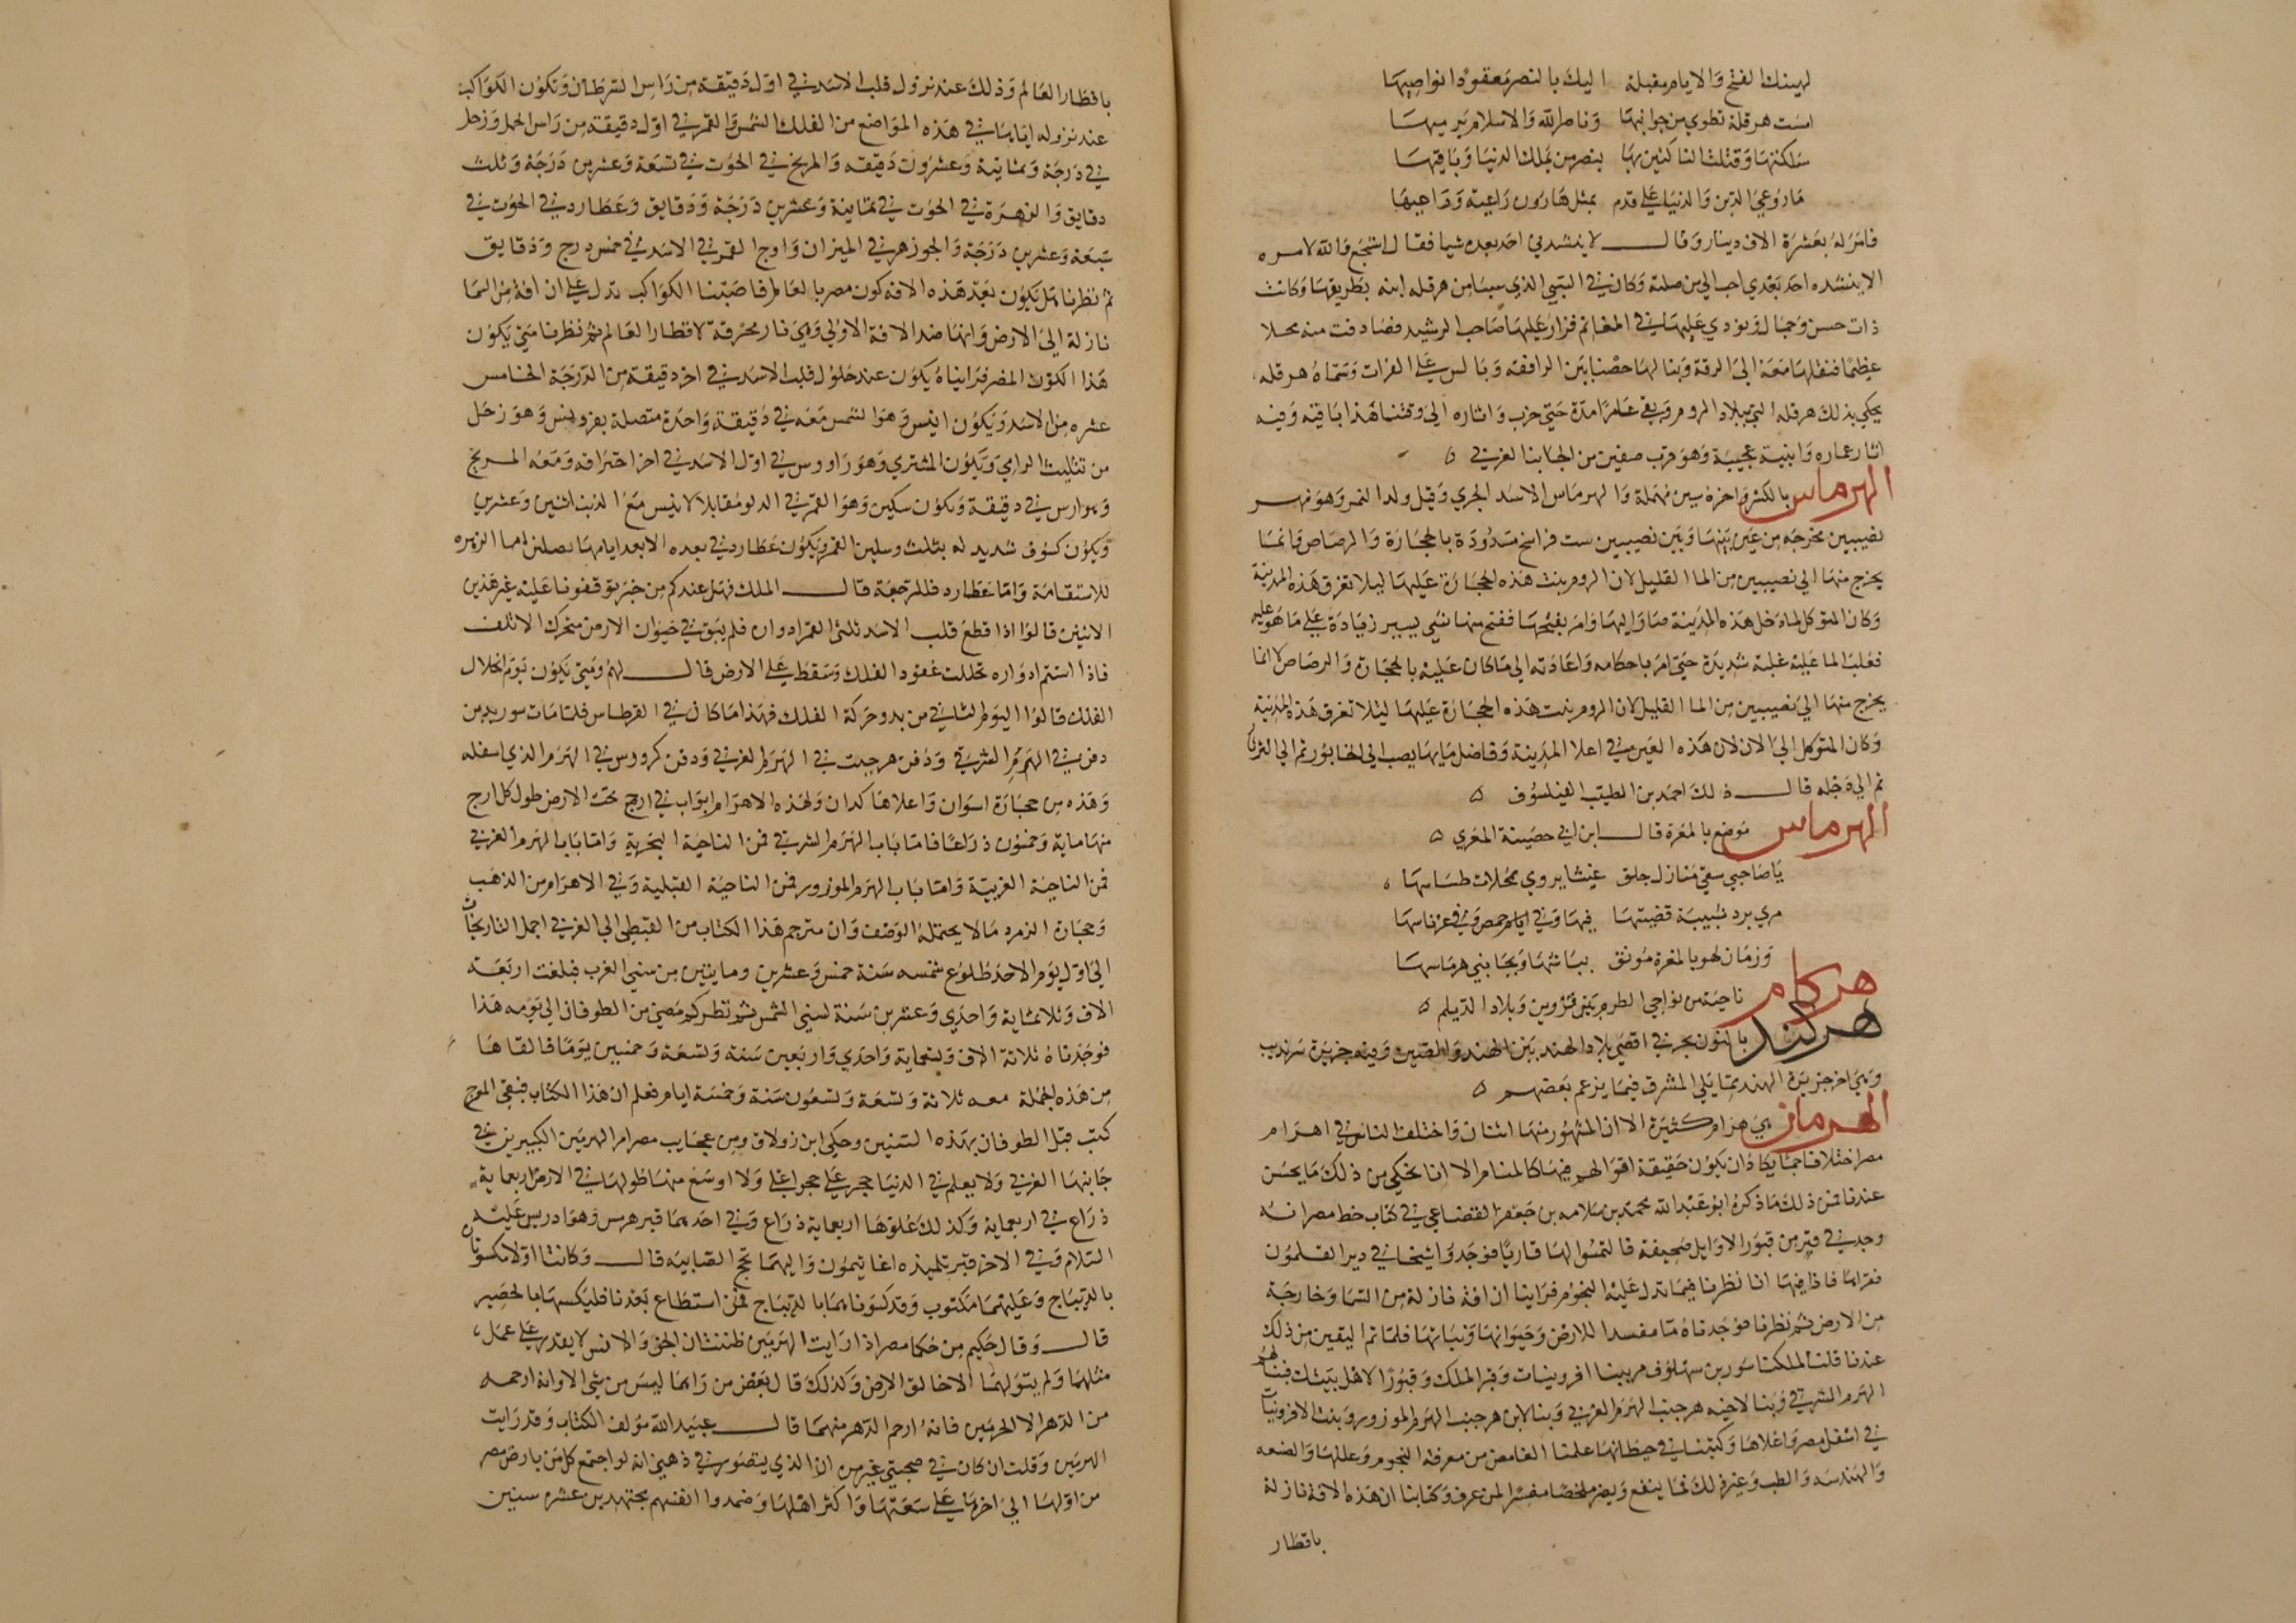 ليهنك الفتح والايام مقبلة اليك بالنصر معقودا نواصيها
امست هرقلة تهوي من جوانبها وناصر الله والاسلام يرميها
ملكتها وقتلت الناكثين بها بنصر من يملك الدنيا وما فيها
ما روعي الدين والدنيا على قدم بمثل هارون راعيه وراعيها
فامر له بعشرة الاف دينار وقال لا ينشدني احد بعده شيا فقال اشجع والله لامره
الا ينشده احد بعدي احب الي من صلته وكان في السبي الذي سبيا من هرقله ابنه بطريقها وكانت
ذات حسن وجمال فنودي عليها في المغانم فزاد عليها صاحب الرشيد فصادفت منه محلا
عظيما فنقلها معه الى الرقة وبنا لها حصنا بين الرافقه وبالس على الفرات وسماه هرقله
يحكي بذلك هرقله التي ببلاد الروم وبقي عامرا مدة حتى خرب واثاره الى وقتنا هذا باقيه وفيه
اثار عماره وابنية عجيبة وهو قرب صفين من الجانب الغربي ه
الهرماس بالكسر واخره سين مهملة والهرماس الاسد الجري وقيل ولد النمر وهو نهر
نصيبين مخرجه من عين بينها وبين نصيبين ست فراسخ مسدودة بالحجارة والرصاص وانما
يخرج منها الى نصيبين من الما القليل لان الروم بنت هذه الحجارة عليها ليلا تغرق هذه المدينة
وكان المتوكل لما دخل هذه المدينة سار اليها وامر بفتحها ففتح منها شي يسير زيادة على ما هو عليه
فغلب الما عليه غلبة شديدة حتى امر باحكامه واعادته الى ما كان عليه بالحجارة والرصاص لانما
يخرج منها الى نصيبين من الما القليل لان الروم بنت هذه الحجارة عليها لئلا تغرق هذه المدينة
وكان المتوكل الى الان لان هذه العين في اعلا المدينة وفاضل مايها يصب الى الخابور ثم الى الثرثار
ثم الى دجله قال ذلك احمد بن الطيب الفيلسوف ه
الهرماس موضع بالمعرة قال ابن ابي حصينة المعري ه
يا صاحبي سقى منازل جلق غيثا يروي محلات طساسها ه
مري برد شبيبة قضيتها فيها وفي ايام حمص وفي عرناسها
وزمان لهو بالمعرة مونق بسيائها وبجانبي هرماسها
هركام ناحية من نواحي الطرم بين قزوين وبلاد الديلم ه
هركند بالنون بحر في اقصى بلاد الهند بين الهند والصين وفيه جزيرة سرنديب
وهي اخر جزيرة الهند مما يلي المشرق فيما يزعم بعضهم ه
الهرمان هي هرام كثيرة الا ان المشهور منها اثنان واختلف الناس في اهرام
مصر اختلافا جما يكاد ان يكون حقيقة اقوالهم فيها كالمنام الا انا نحكي من ذلك ما يحسن
عندنا فمن ذلك ما ذكره ابو عبد الله محمد بن سلامه بن جعفر القضاعي في كتاب خطط مصر انه
وجد في قبر من قبور الاوايل صحيفة فالتمسوا لها قاريا فوجدوا شيخا في دير القلمون
فقراها فاذا فيها انا نظرنا فيما تدل عليه النجوم فراينا ان افة نازلة من السما وخارجة
من الارض ثم نظرنا فوجدناه ما مفسدا للارض وحيوانها ونباتها فلما تم اليقين من ذلك
عندنا قلنا لملكنا سوريد بن سهلوف مر ببنا افرونيات وقبر الملك وقبورا لاهل بيتك فبنا لهم
الهرم الشرقي وبنا لاخيه هرجيب الهرم الغربي وبنا لابن هرجيب الهرم الموزور وبنيت الافرونيات
في اسفل مصر واعلاها وكتبنا في حيطانها علما الغامض من معرفة النجوم وعللها والصنعه
والهندسه والطب وغير ذلك مما ينفع ويضر ملخصا مفسرا لمن عرف وكتابنا ان هذه الافة نازلة
باقطار
باقطار العالم وذلك عند نزول قلب الاسد في اول دقيقة من راس السرطان وتكون الكواكب
عند نزوله اياها في هذه المواضع من الفلك الشمس والقمر في اول دقيقة من راس الحمل وزحل
في درجة وثمانية وعشرون دقيقه والمريخ في الحوت في تسعة وعشرين درجة وثلث
دقايق والزهرة في الحوت في ثمانية وعشرين درجة ودقايق وعطارد في الحوت في
سبعة وعشرين درجة والجوزهر في الميزان واوج القمر في الاسد في خمس درج ودقايق
ثم نظرنا هل يكون بعد هذه الافه كون مضر بالعالم فاصبنا الكواكب تدل على ان افة من السما
نازلة الى الارض وانها ضد الافة الاولى وهي نار محرقة لاقطار العالم ثم نظرنا متى يكون
هذا الكون المضر فرايناه يكون عند حلول قلب الاسد في اخر دقيقة من الدرجة الخامس
عشره من الاسد ويكون ايليس وهو الشمس معه في دقيقة واحدة متصلة بفرونيس وهو زحل
من تثليث الرامي ويكون المشتري وهو زاووس في اول الاسد في اخر احتراقه ومعه المريخ
وهو ارس في دقيقة ويكون سكين وهو القمر في الدلو مقابلا لايليس مع الذنب اثنين وعشرين
ويكون كسوف شديد له بثلث وسلين القمر ويكون عطارد في بعده الابعد امامها الزهره
للاستقامة واما عطارد فللرجعة قال الملك فهل عندكم من خبر توقفونا عليه غير هذين
الاثنين قالوا اذا قطع قلب الاسد ثلثي العمر ادواره فلم يبق في حيوان الارض متحرك الا تلف
فاذا استتم ادواره تحللت عقود الفلك وسقط على الارض قال لهم ومتى يكون يوم انحلال
الفلك قالوا اليوم الثاني من بدو حركة الفلك فهذا ما كان في القرطاس فلما مات سوريد بن
دفن في الهرم الشرقي ودفن هرجيت في الهرم الغربي ودفن كرورس في الهرم الذي اسفله
وهذه من حجارة اسوان واعلاها كدان ولهذه الاهرام ابواب في ازج تحت الارض طول كل ازج
منها ماية وخمسون ذراعا فاما باب الهرم الشرقي فمن الناحية البحرية واما باب الهرم الغربي
فمن الناحية الغربية واما باب الهرم الموزور فمن الناحية القبلية وفي الاهرام من الذهب
وحجارة الزمرد ما لا يحتمله الوصف وان مترجم هذا الكتاب من القبطي الى العربي اجمل التاريخات
الى اول يوم الاحد طلوع شمسه سنة خمس وعشرين وماتين من سني العرب فبلغت اربعة
الاف وثلاثماية واحدي وعشرين سنة لسني الشمس ثم نظر كم مضى من الطوفان الى يومه هذا
فوجدناه ثلاثة الاف وتسعماية واحدي واربعين سنة وتسعة وخمسين يوما فالقاها
من هذه الجملة معه ثلاثة وتسعة وتسعون سنة وخمسة ايام فعلم ان هذا الكتاب فبقي المورخ
كتب قبل الطوفان بهذه السنين وحكى ابن زولاق ومن عجايب مصر امر الهرمين الكبيرين في
جانبها الغربي ولا يعلم في الدنيا حجر على حجر اعلى ولا اوسع منها طولها في الارض اربعماية
ذراع في اربعماية وكذلك علوها اربعماية ذراع وفي احدهما قبر هرمس وهو ادريس عليه
السلام وفي الاخر قبر تلميذه اغاثيمون واليهما تحج الصابيه قال وكانتا اولا مكسوتان
بالديباج وعليهما مكتوب وقد كسوناهما بالديباج فمن استطاع بعدنا فليكسهما بالحصير
قال وقال حكيم من حكما مصر اذا رايت الهرمين ظننت ان الجن والانس لا يقدر على عمل
مثلهما ولم يتولهما الا خالق الارض ولذلك قال بعض من راهما ليس من شي الا وانه ارحمه
من الدهر الا الهرمين فانه ارحم الدهر منهما قال عبيد الله مولف الكتاب وقد رايت
الهرمين وقلت ان كان في صحبتي غير من ان الذي يتصور في ذهني انه لو اجتمع كل من بارض مصر
من اولها الى اخرها على سعتها وكثر اهلها وصمدوا انفسهم مجتهدين عشره سنين